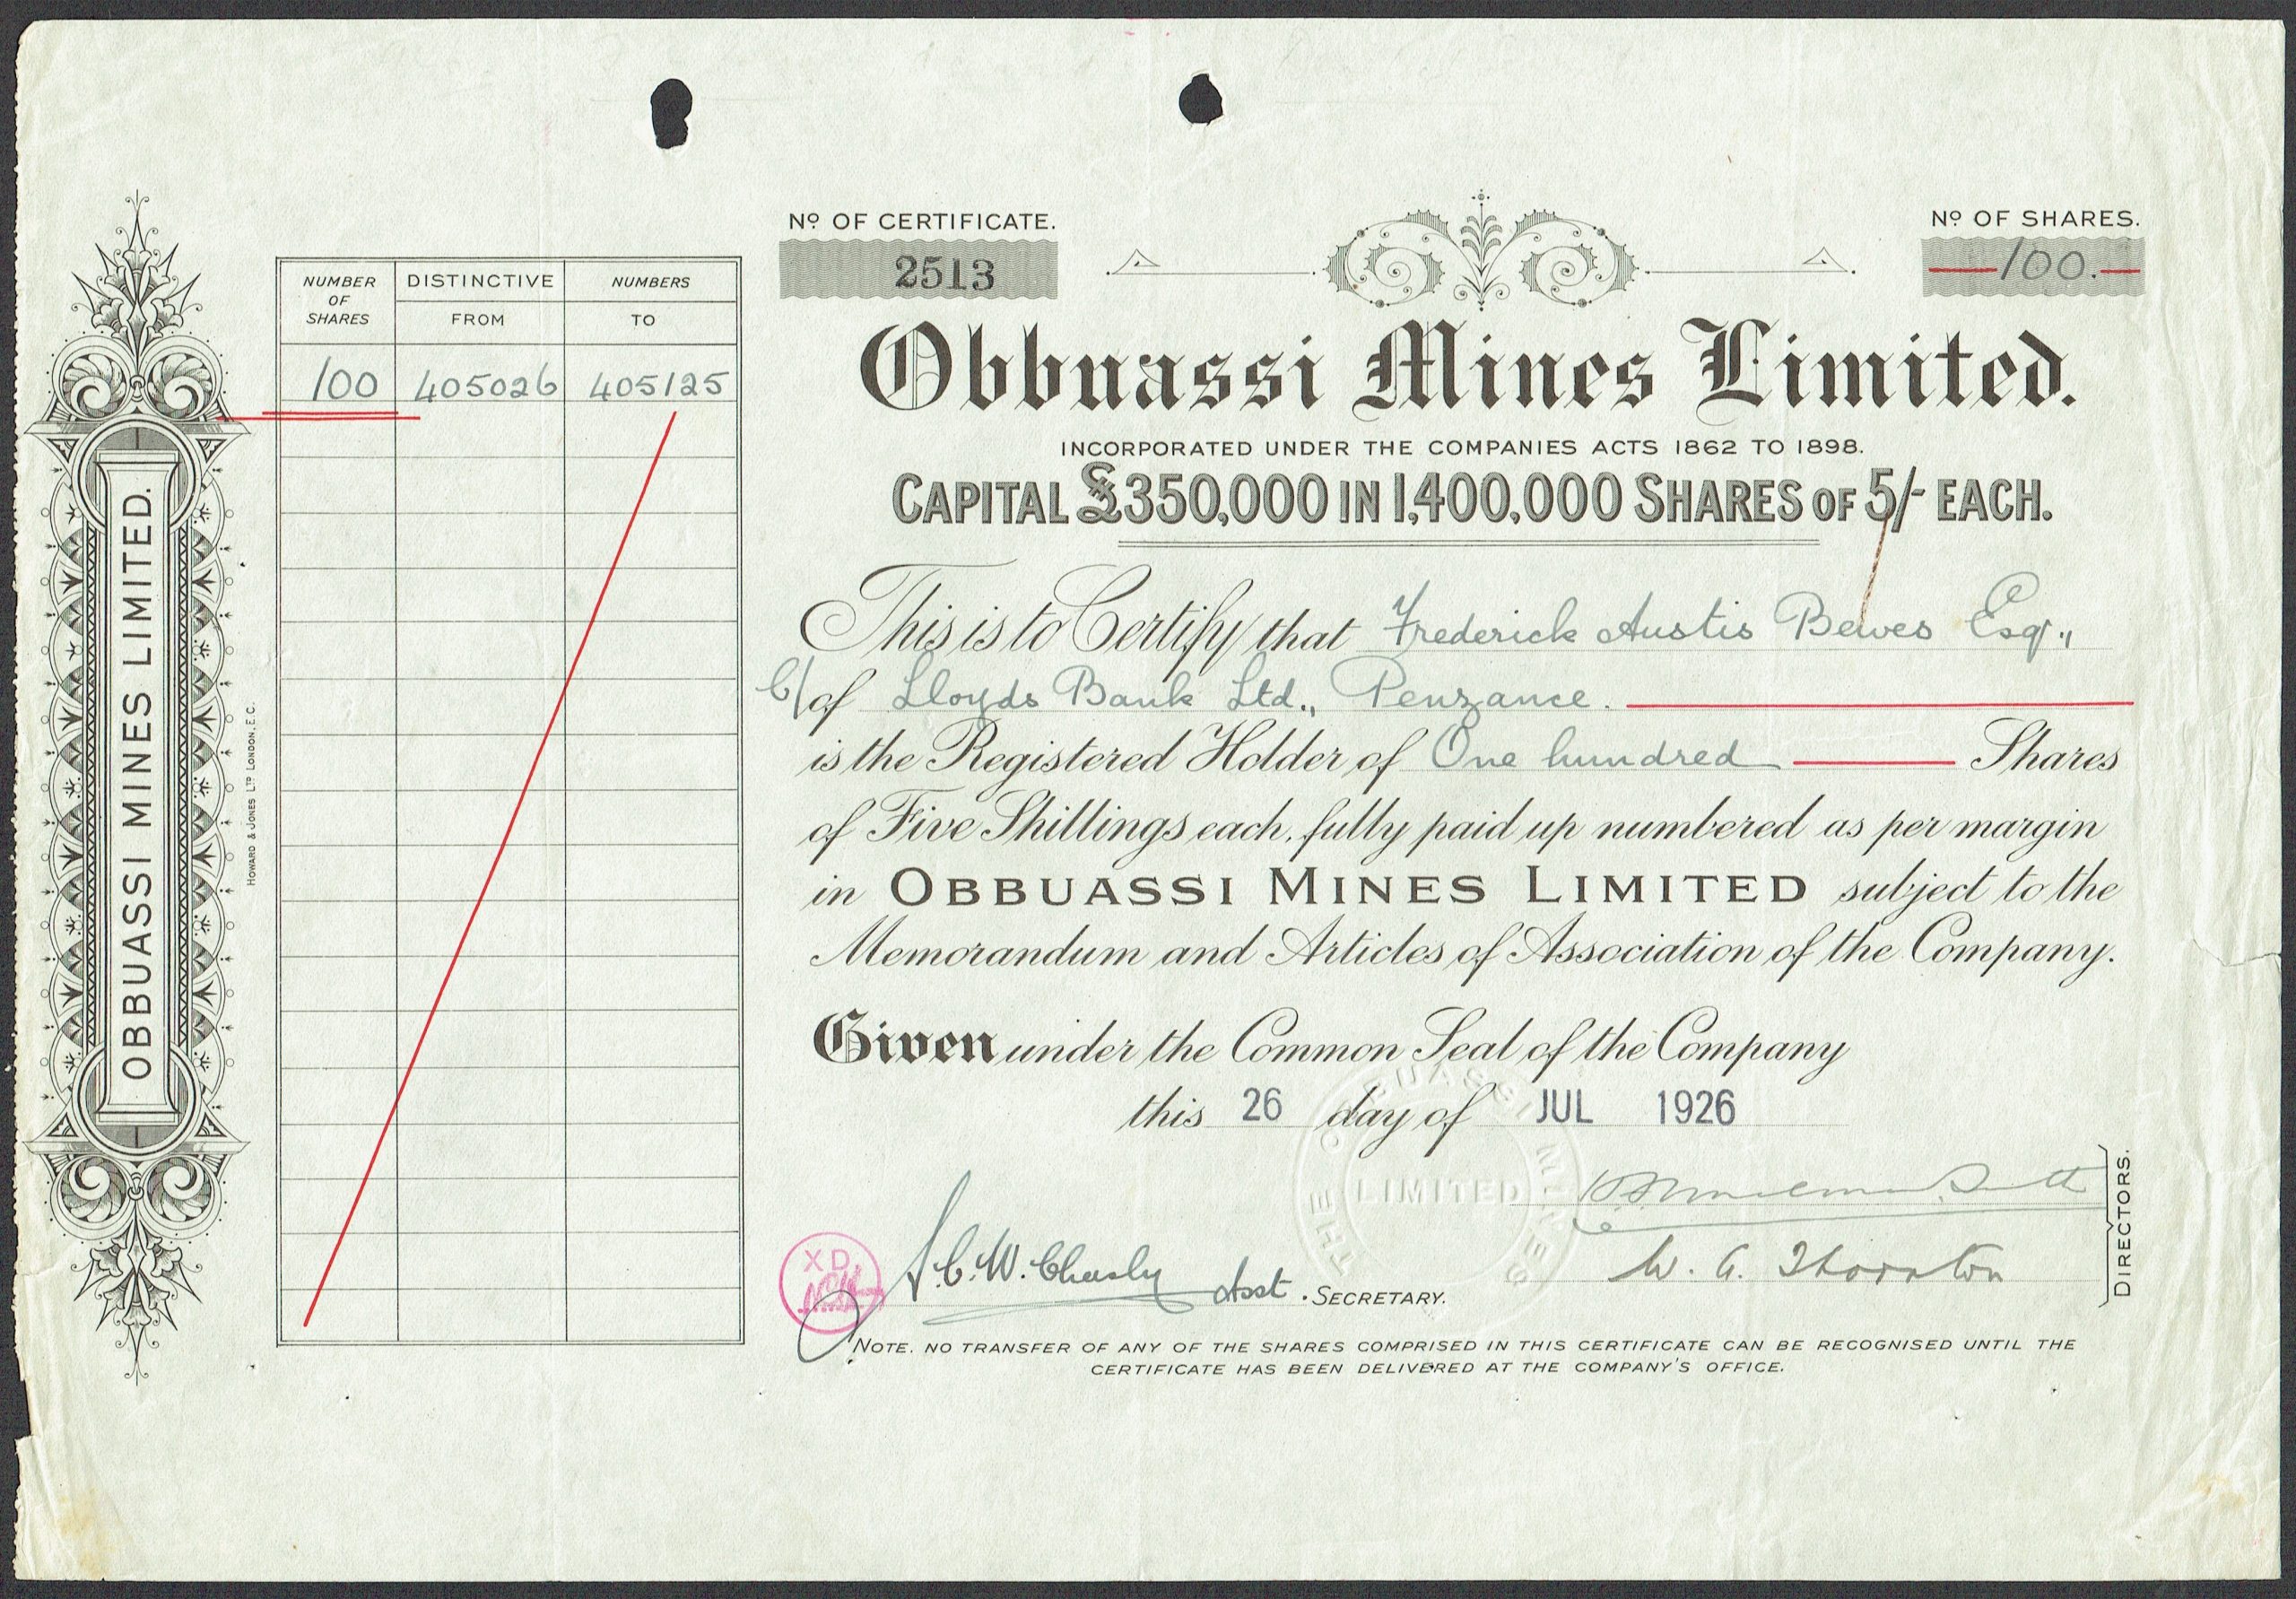 OBBUASSI MINES LIMITED.
HOWARD & JONES LTD LONDON. E.C.
NUMBER OF SHARES
DISTINCTIVE NUMBERS
FROM TO
100 405026 405125
No OF CERTIFICATE.
2513
No OF SHARES.
100.
Obbuassi Mines Limited.
INCORPORATED UNDER THE COMPANIES ACTS 1862 TO 1898.
CAPITAL £350,000 IN 1,400,000 SHARES OF 5/- EACH.
This is to Certify that Frederick Austis Bewes Esq.,
C/ of Lloyds Bank Ltd., Penzance.
is the Registered Holder of One hundred Shares
of Five Shillings each, fully paid up numbered as per margin
in OBBUASSI MINES LIMITED subject to the
Memorandum and Articles of Association of the Company.
Given under the Common Seal of the Company
this 26 day of JUL 1926
THE OBBUASSI MINES
LIMITED
X D.
Asst. SECRETARY.
W. G. Thornton
DIRECTORS.
NOTE. NO TRANSFER OF ANY OF THE SHARES COMPRISED IN THIS CERTIFICATE CAN BE RECOGNISED UNTIL THE
CERTIFICATE HAS BEEN DELIVERED AT THE COMPANY'S OFFICE.